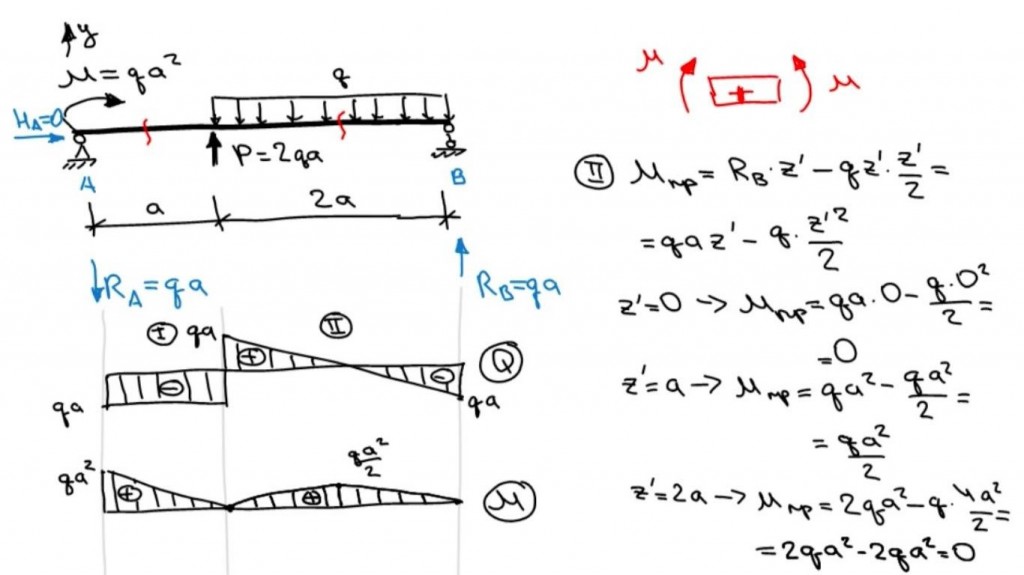 y
M = qa²
q
H_A=0
P=2qa
A
B
a
2a
R_A=qa
R_B=qa
I
qa
II
+
-
-
Q
qa
qa
qa²
+
qa²/2
+
M
M
+
M
II M_пр = R_B · z' - qz' · z'/2 =
= qaz' - q · z'²/2
z'=0 → M_пр = qa · 0 - q·0²/2 =
=0
z'=a → M_пр = qa² - qa²/2 =
= qa²/2
z'=2a → M_пр = 2qa² - q · 4a²/2 =
= 2qa² - 2qa² = 0